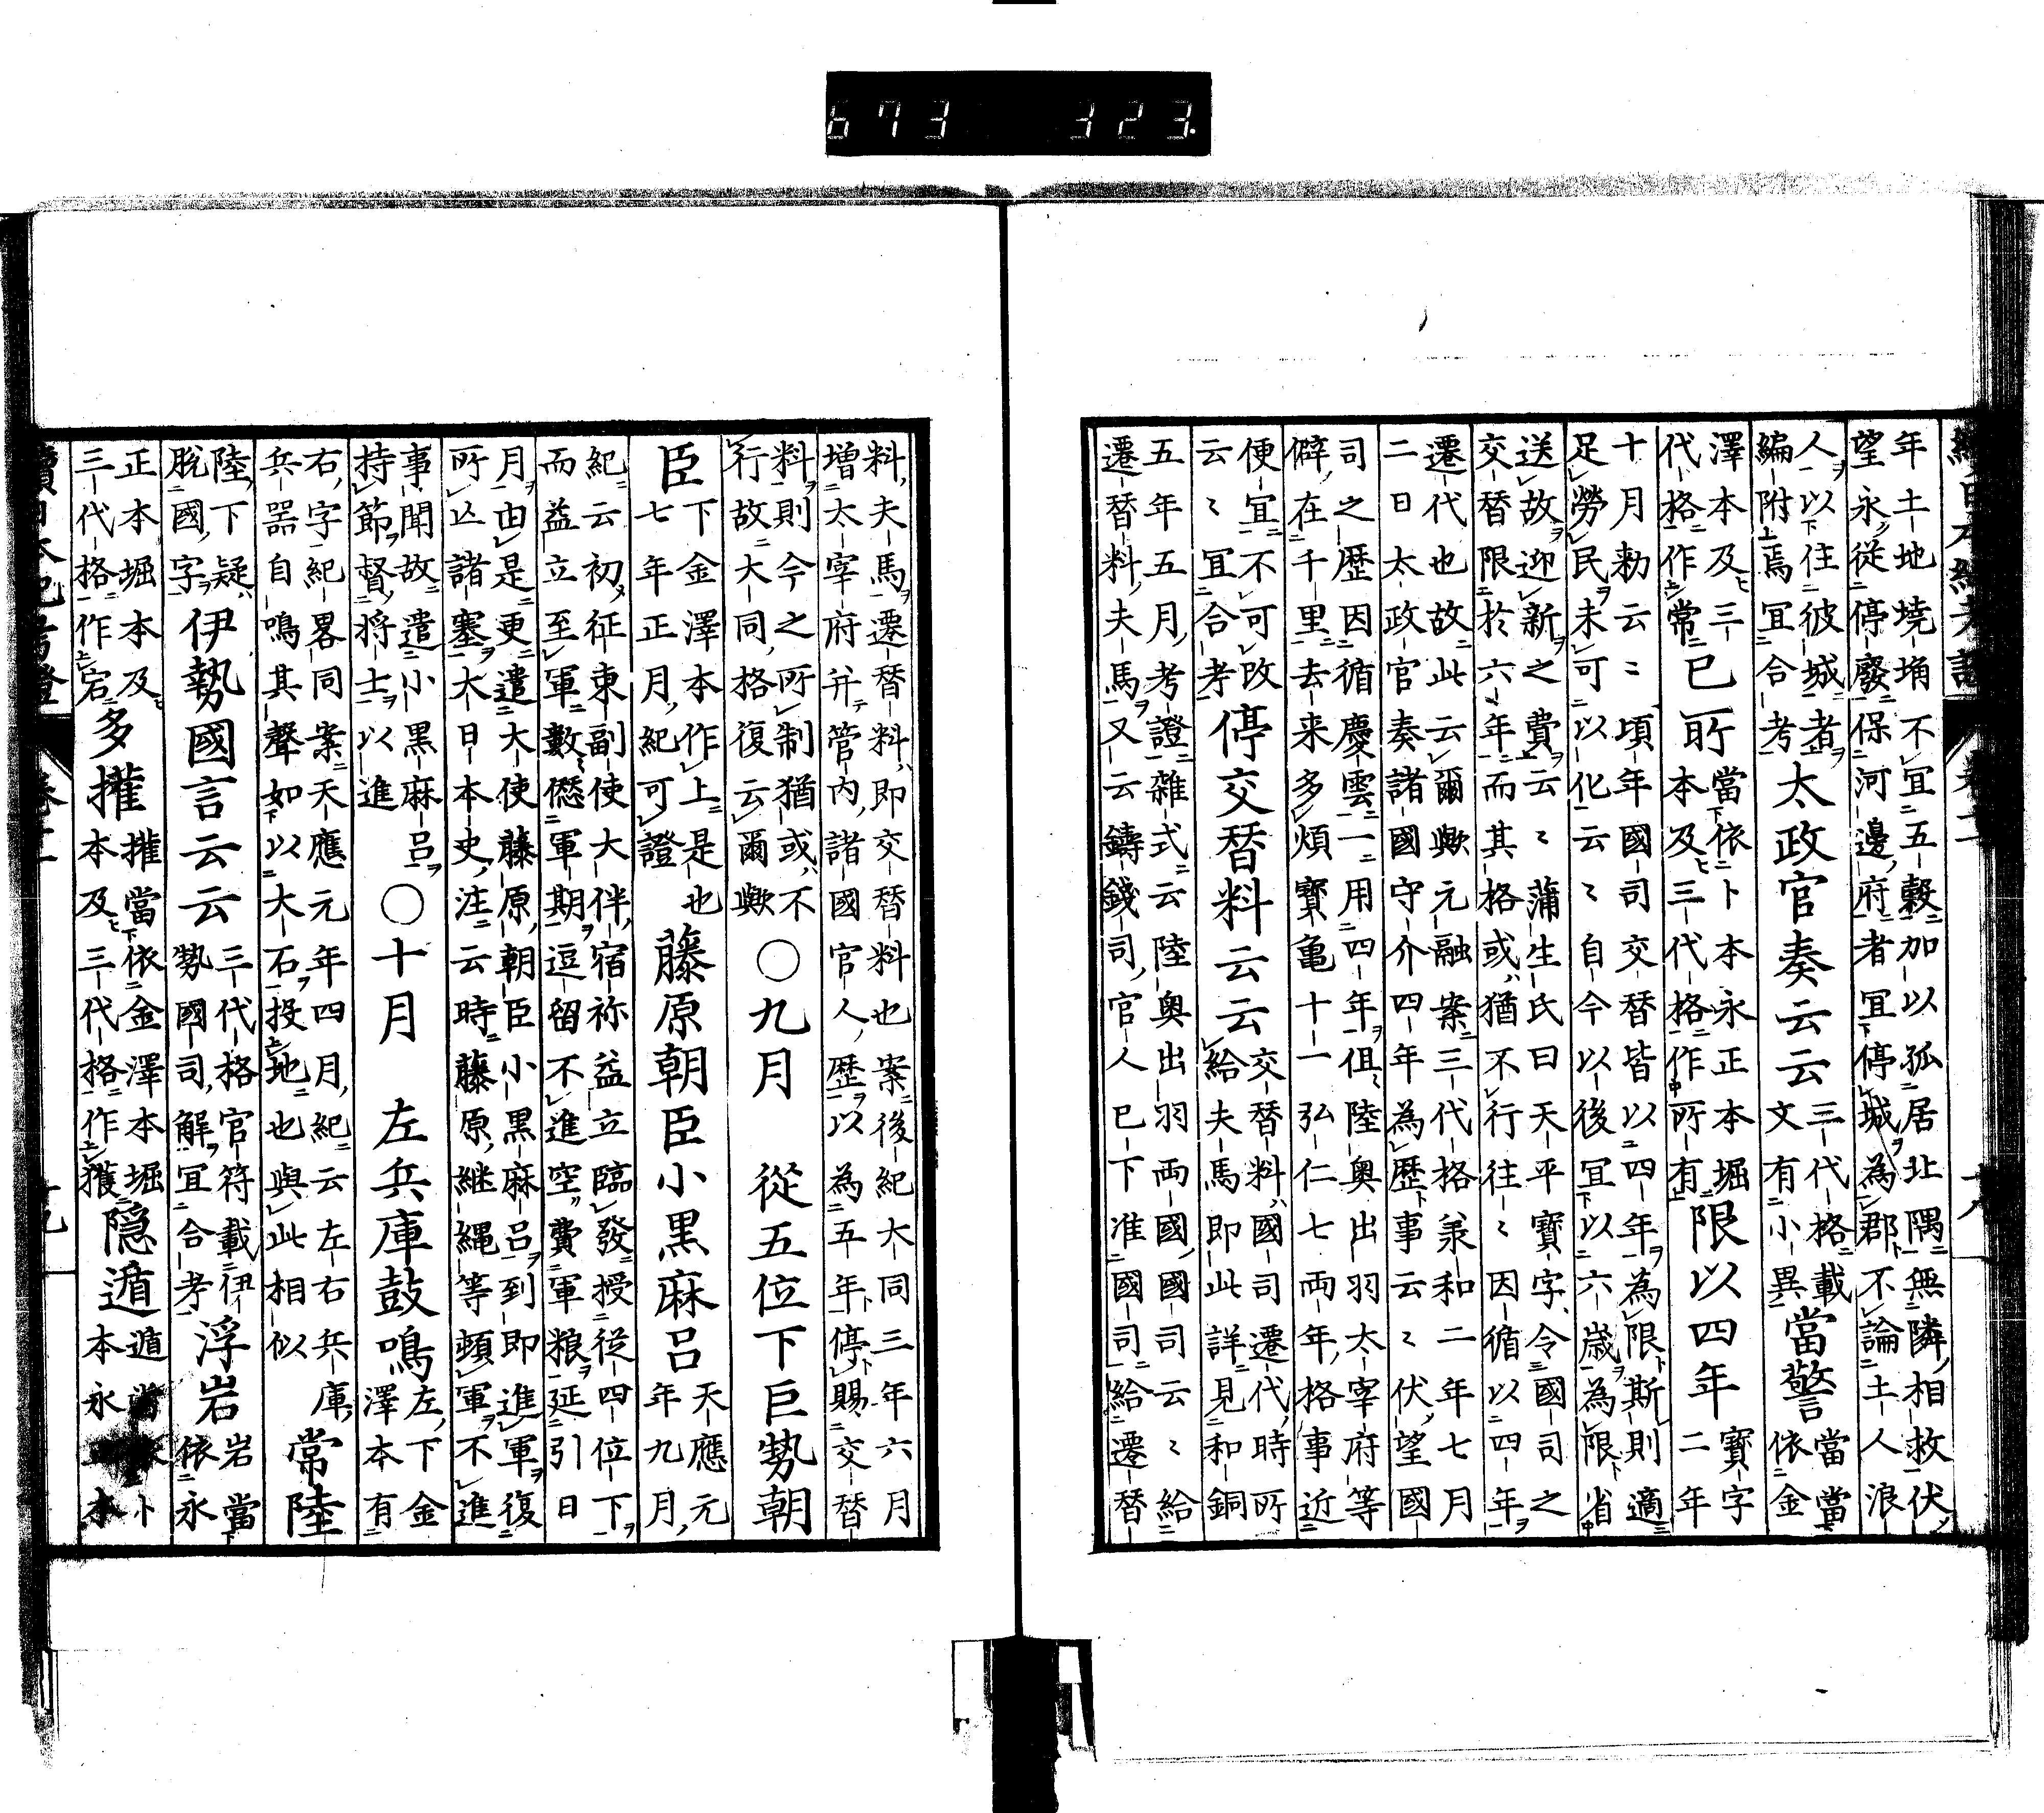 673 323.
年土地墝埆不宜五穀加以孤居北隅無隣相救伏
望永從停廢保河邊府者冝停城為郡不論土人浪
人以住彼城者
編附焉冝合考
太政官奏云云
三代格載
文有小異
當警
當當
依金
澤本及三
代格作常
已所
當依卜本永正本堀
本及三代格作所有
限以四年
寶字
二年
十月勑云〻頃年國司交替皆以四年為限斯則適
足勞民未可以化云〻自今以後冝以六歳為限省
送故迎新之費云〻蒲生氏曰天平寶字令國司之
交替限於六年而其格或猶不行往〻因循以四年
遷代也故此云爾歟元融案三代格兼和二年七月
二日太政官奏諸國守介四年為歴事云〻伏望國
司之歴因循慶雲一用四年伹陸奥出羽太宰府等
僻在千里去来多煩寶亀十一弘仁七兩年格事近
便宜不可改
云〻冝合考
停交替料云云
交替料國司遷代時所
給夫馬即此詳見和銅
五年五月考證雜式云陸奥出羽両國國司云〻給
遷替料夫馬又云鑄錢司官人已下准國司給遷替
料夫馬遷替料即交替料也案後紀大同三年六月
増太宰府并管内諸國官人歴以為五年停賜交替
料則今之所制猶或不
行故大同格復云爾歟
〇九月 從五位下巨勢朝
臣
下金澤本作上是也
七年正月紀可證
藤原朝臣小黒麻呂
天應元
年九月
紀云初征東副使大伴宿祢益立臨發授從四位下
而益立至軍數愆軍期逗留不進空費軍粮延引日
月由是更遣大使藤原朝臣小黒麻呂到即進軍復
所亾諸塞大日本史注云時藤原継縄等頓軍不進
事聞故遣小黒麻呂
持節督將士以進
〇十月 左兵庫鼓鳴
左下金
澤本有
右字紀畧同案天應元年四月紀云左右兵庫
兵噐自鳴其聲如以大石投地也與此相似
常陸
陸下疑
脱國字
伊勢國言云云
三代格官符載伊
勢國司解冝合考
浮岩
岩當
依永
正本堀本及
三代格作宕
多摧
摧當依金澤本堀
本及三代格作獲
隠遁
遁
本永
本